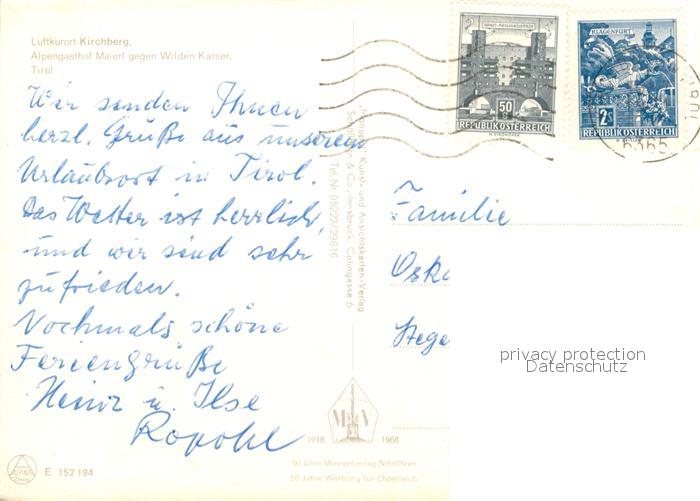 Luftkurort Kirchberg,
Alpengasthof Maierl gegen Wilden Kaiser,
Tirol
Wir senden Ihnen
herzl. Grüße aus unserem
Urlaubsort in Tirol.
Das Wetter ist herrlich,
und wir sind sehr
zufrieden.
Nochmals schöne
Feriengrüße
Heinz u. Ilse
Ropohl
E 152 194
1918
MV
1968
50 Jahre Werbung für Österreich
Kunst- und Ansichtskarten-Verlag
& Co., Innsbruck, Colingasse 6
Tel. Nr. 05222/29816
50
REPUBLIK ÖSTERREICH
KLAGENFURT
2S
REPUBLIK ÖSTERREICH
6365
Familie
Oska
Stege
privacy protection
Datenschutz